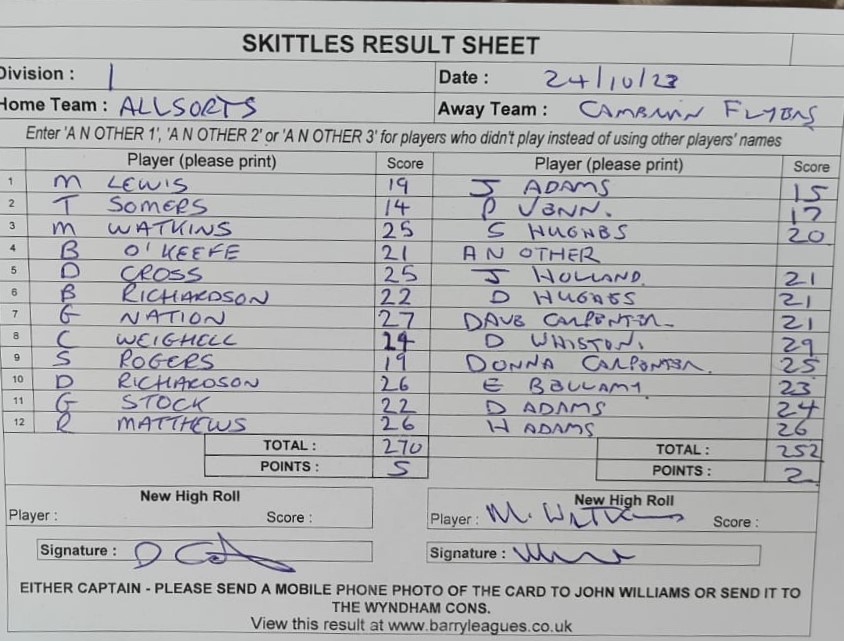 SKITTLES RESULT SHEET
Division : 1 Date : 24/10/23
Home Team : ALLSORTS Away Team : CAMBRIAN FLYERS
Enter 'A N OTHER 1', 'A N OTHER 2' or 'A N OTHER 3' for players who didn't play instead of using other players' names
Player (please print) Score Player (please print) Score
1 M LEWIS 19 J ADAMS 15
2 T SOMERS 14 P VENN. 17
3 M WATKINS 25 S HUGHES 20
4 B O'KEEFE 21 A N OTHER
5 D CROSS 25 J HOLLAND. 21
6 B RICHARDSON 22 D HUGHES 21
7 G NATION 27 DAVE CARPENTER 21
8 C WEIGHELL 24 D WHISTON. 29
9 S ROGERS 19 DONNA CARPENTER. 25
10 D RICHARDSON 26 E BELLAMY 23
11 G STOCK 22 D ADAMS 24
12 R MATTHEWS 26 H ADAMS 26
TOTAL : 270 TOTAL : 252
POINTS : 5 POINTS : 2
New High Roll New High Roll
Player : Score : Player : M. Watkins Score :
Signature : Signature :
EITHER CAPTAIN - PLEASE SEND A MOBILE PHONE PHOTO OF THE CARD TO JOHN WILLIAMS OR SEND IT TO
THE WYNDHAM CONS.
View this result at www.barryleagues.co.uk